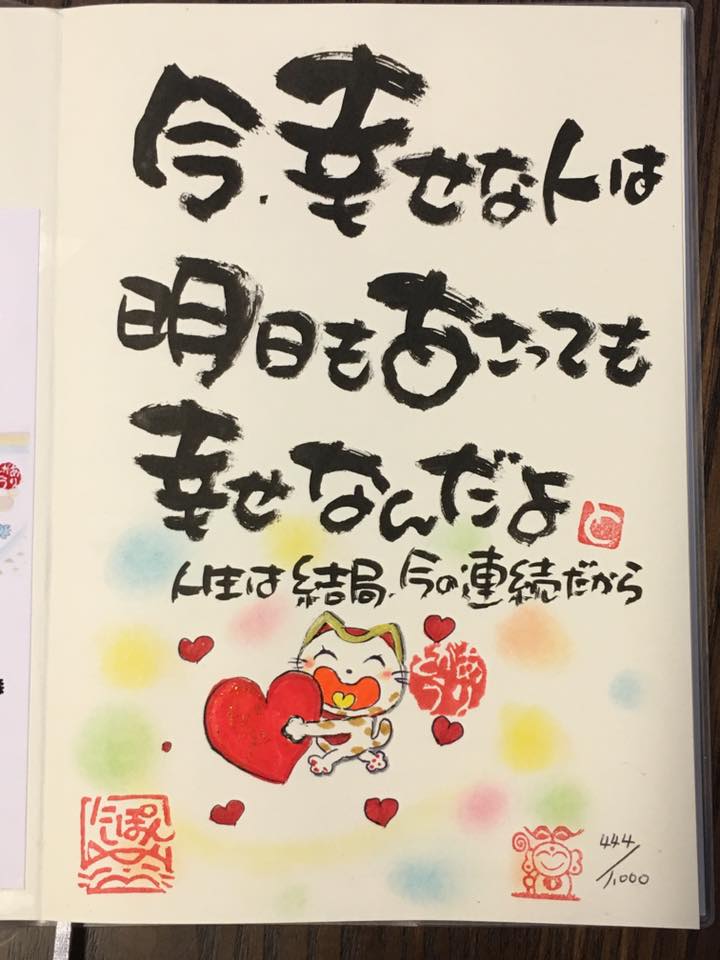 今、幸せな人は
明日もあさっても
幸せなんだよ
人生は結局、今の連続だから
ありがとう
にしぽん
444/1,000